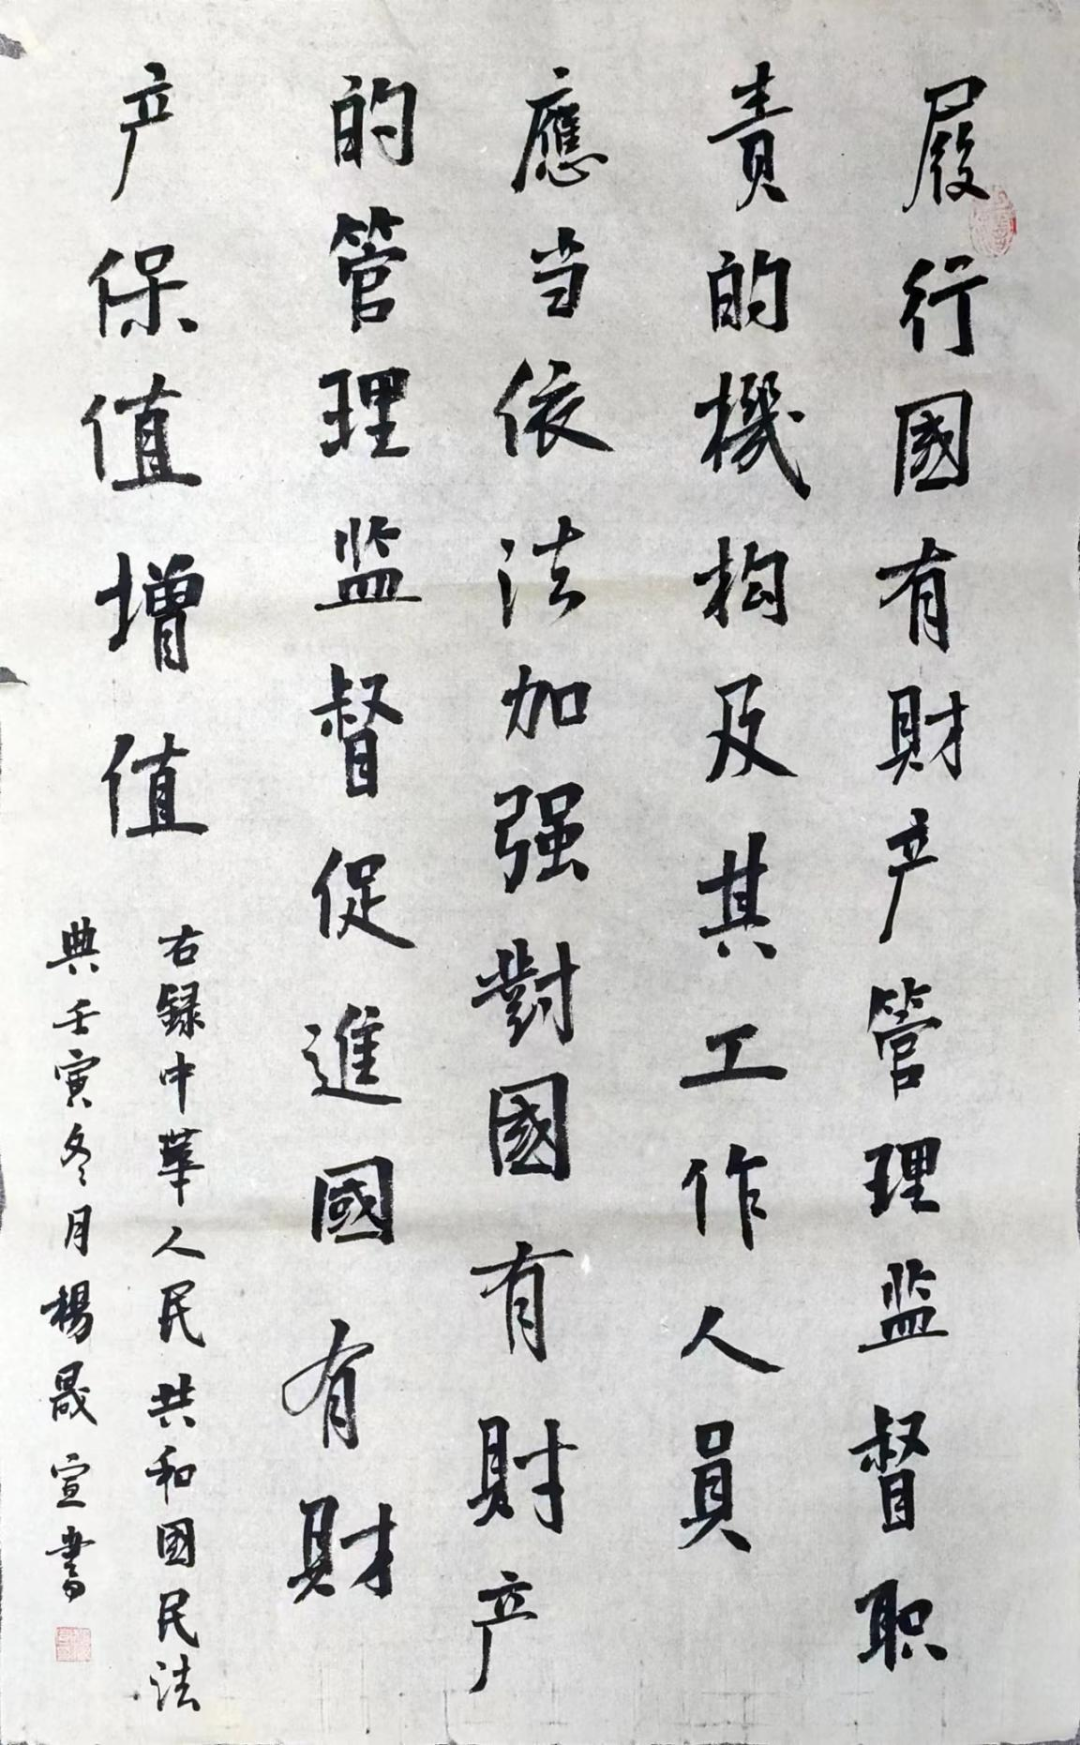 履行國有財产管理监督职
責的機构及其工作人員
應当依法加强對國有財产
的管理监督促進國有財
产保值增值
右録中華人民共和國民法
典壬寅冬月楊晟宣書